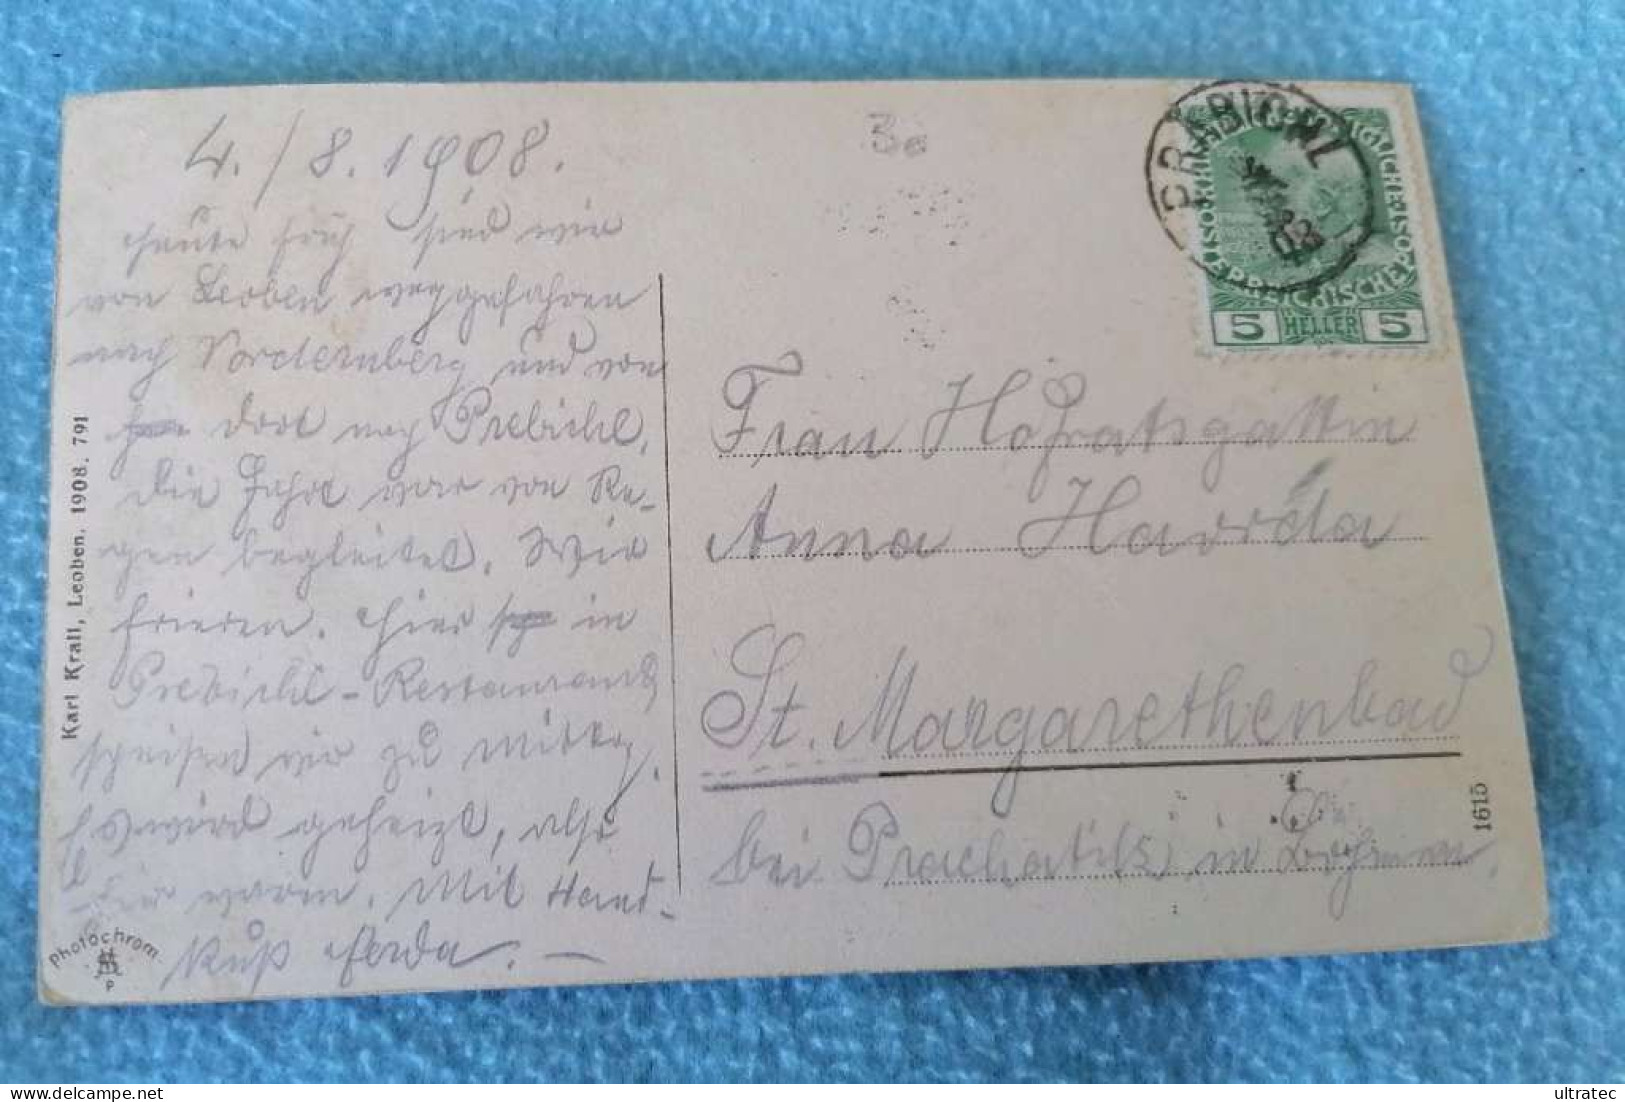 4./8. 1908.
heute früh sind wir
von Leoben weggefahren
nach Vordernberg und von
dort nach Prebichl.
Die Fahrt war von Re-
gen begleitet. Wir
frieren. Hier in
Prebichl-Restaurant
speisen wir zu Mittag.
Es wird geheizt, also
hier warm. Mit Hand-
kuß Ferda. —
Photochrom
P
Karl Krall, Leoben. 1908. 791
30
PRÄBICHL
KAISERLICHE KÖNIGLICHE ÖSTERREICHISCHE POST
5 HELLER 5
Frau Hofratsgattin
Anna Havrda
St. Margarethenbad
bei Prachatits in Böhmen.
1615
ultratec